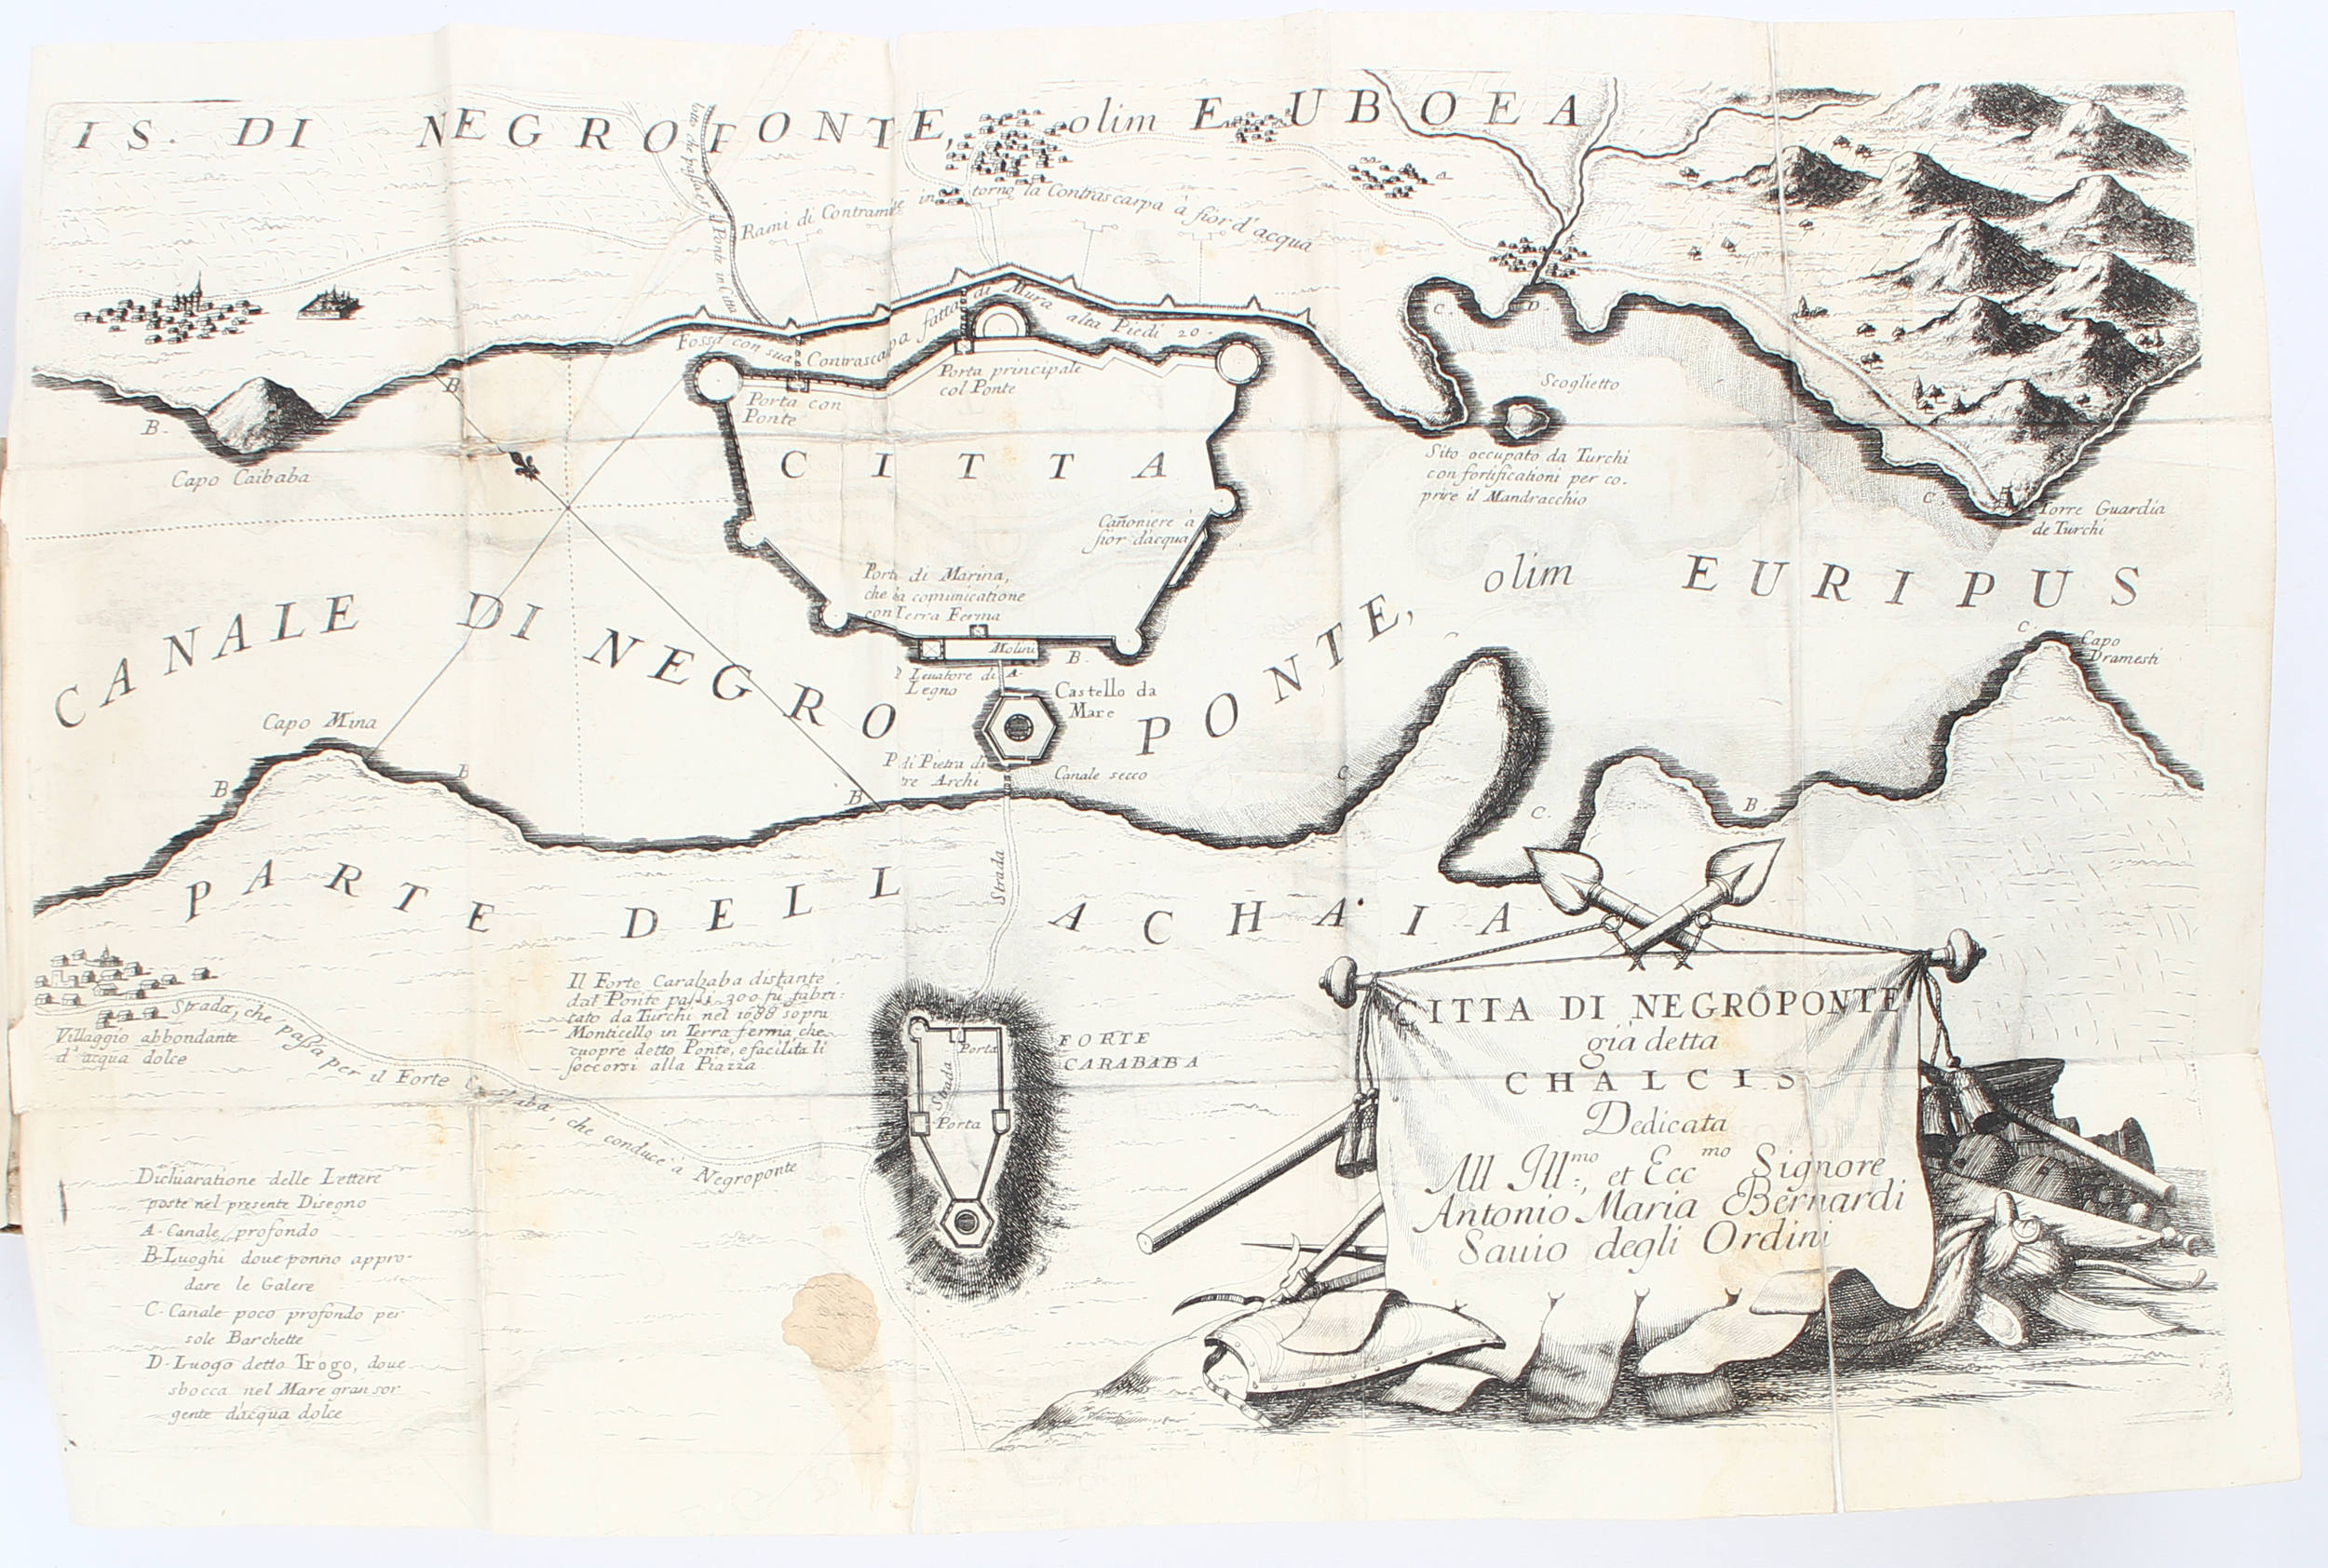 IS. DI NEGROPONTE, olim EUBOEA
Rami di Contramine intorno la Contrascarpa à fior d'acqua
Ponte in Citta
Fossa con sua Contrascarpa fatta di Mura alta Piedi 20.
Porta con
Ponte
Porta principale
col Ponte
CITTA
Cañoniere à
fior dacqua
Porta di Marina,
che à comunicatione
con Terra Ferma
Molini
B.
A.
P. Leuatore di
Legno
Castello da
Mare
P. di Pietra di
tre Archi
Canale secco
B
B.
Capo Caibaba
C.
D
Scoglietto
Sito occupato da Turchi
con fortificationi per co-
prire il Mandracchio
C
Torre Guardia
de Turchi
CANALE DI NEGROPONTE, olim EURIPUS
Capo Mina
B
B
B
C
C.
B.
C.
Capo
Dramesti
PARTE DELL ACHAIA
Strada
Strada, che passa per il Forte Carababa, che conduce à Negroponte
Villaggio abbondante
d'acqua dolce
Il Forte Carababa distante
dal Ponte passi 300 fù fabri:
cato da Turchi nel 1688 sopra
Monticello in Terra ferma, che
cuopre detto Ponte, e facilita li
soccorsi alla Piazza
FORTE
CARABABA
Porta
Strada
Porta
Dichiaratione delle Lettere
poste nel presente Disegno
A-Canale profondo
B-Luoghi doue ponno appro-
dare le Galere
C-Canale poco profondo per
sole Barchette
D-Luogo detto Trogo, doue
sbocca nel Mare gran sor
gente dàcqua dolce
CITTA DI NEGROPONTE
già detta
CHALCIS
Dedicata
All Ill:mo, et Eccmo Signore
Antonio Maria Bernardi
Sauio degli Ordini